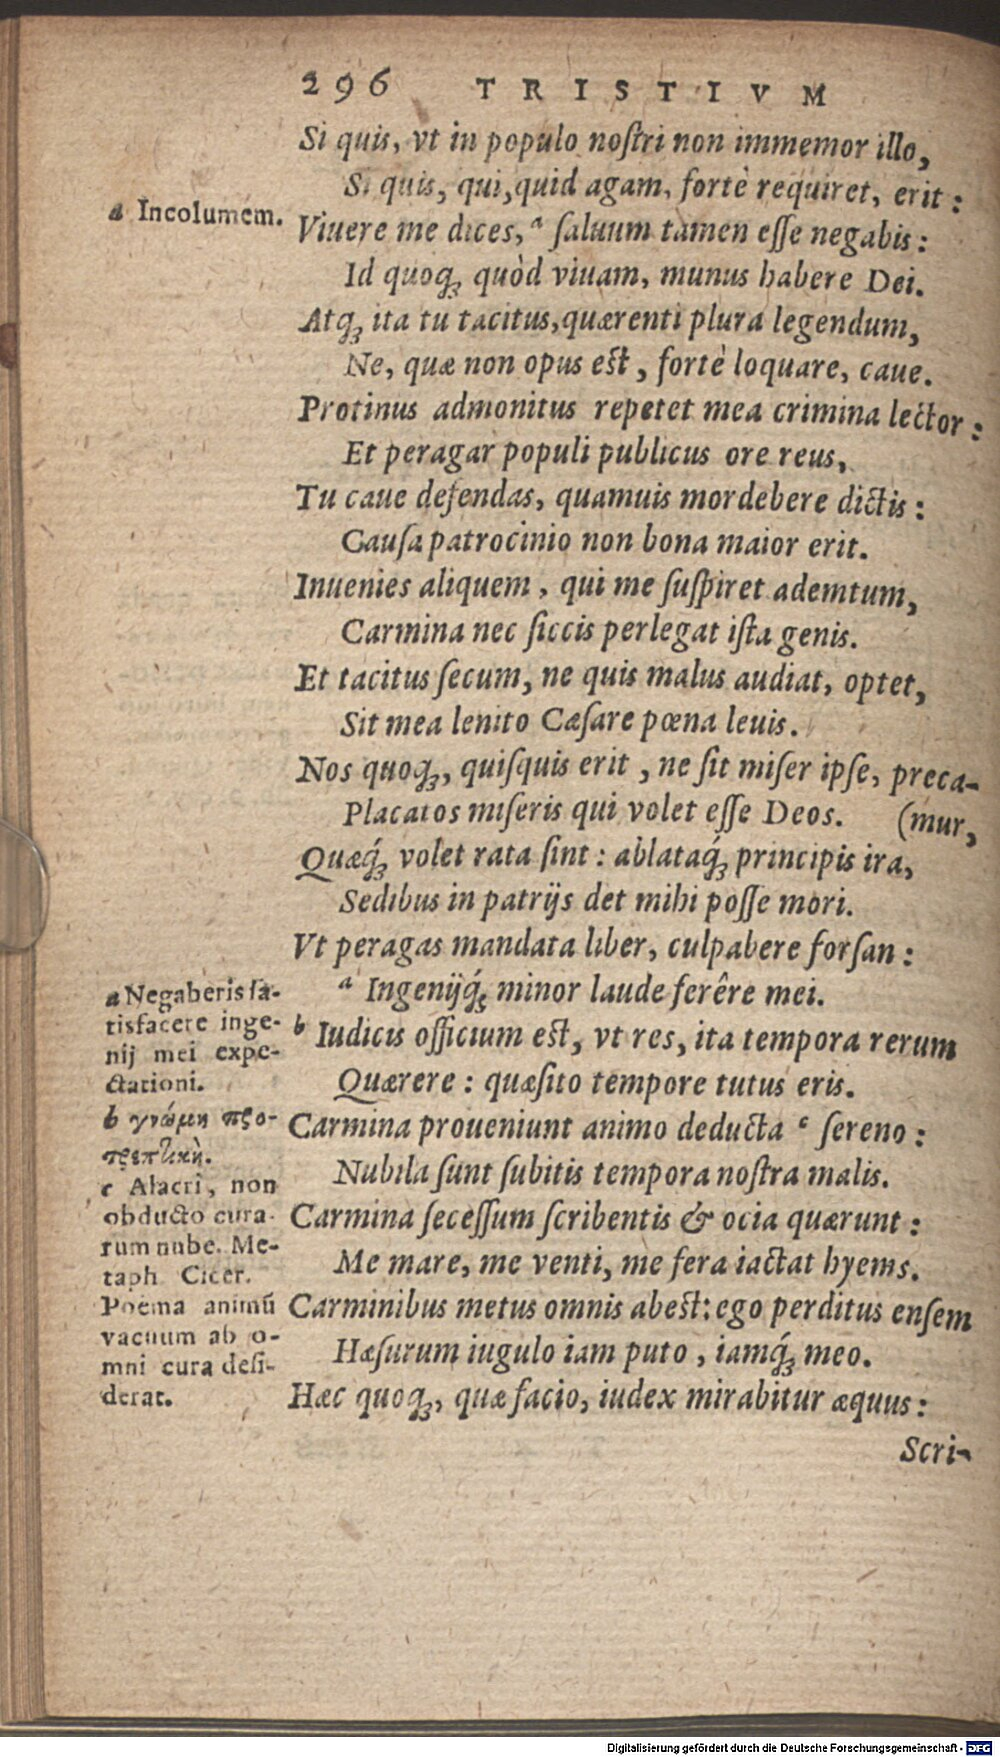 296 TRISTIVM
Si quis, vt in populo noſtri non immemor illo,
Si quis, qui, quid agam, fortè requiret, erit:
a Incolumem.
Viuere me dices, a ſaluum tamen eſſe negabis:
Id quoqꝫ quòd viuam, munus habere Dei.
Atqꝫ ita tu tacitus, quærenti plura legendum,
Ne, quæ non opus eſt, fortè loquare, caue.
Protinus admonitus repetet mea crimina lector:
Et peragar populi publicus ore reus,
Tu caue defendas, quamuis mordebere dictis:
Cauſa patrocinio non bona maior erit.
Inuenies aliquem, qui me ſuſpiret ademtum,
Carmina nec ſiccis perlegat iſta genis.
Et tacitus ſecum, ne quis malus audiat, optet,
Sit mea lenito Cæſare pœna leuis.
Nos quoqꝫ, quiſquis erit, ne ſit miſer ipſe, preca-
Placatos miſeris qui volet eſſe Deos. (mur,
Quæq́ꝫ volet rata ſint: ablataq́ꝫ principis ira,
Sedibus in patrijs det mihi poſſe mori.
Vt peragas mandata liber, culpabere forſan:
a Ingenijq́ꝫ minor laude ferêre mei.
b Iudicis officium eſt, vt res, ita tempora rerum
Quærere: quæſito tempore tutus eris.
Carmina proueniunt animo deducta c ſereno:
Nubila ſunt ſubitis tempora noſtra malis.
Carmina ſeceſſum ſcribentis & ocia quærunt:
Me mare, me venti, me fera iactat hyems.
Carminibus metus omnis abeſt: ego perditus enſem
Hæſurum iugulo iam puto, iamq́ꝫ meo.
Hæc quoqꝫ, quæ facio, iudex mirabitur æquus:
Scri-
a Negaberis ſa-
tisfacere inge-
nij mei expe-
ctationi.
b γνώμη προ-
τρεπτικὴ.
c Alacri, non
obducto cura-
rum nube. Me-
taph Cicer.
Poëma animū
vacuum ab o-
mni cura deſi-
derat.
Digitalisierung gefördert durch die Deutsche Forschungsgemeinschaft - DFG